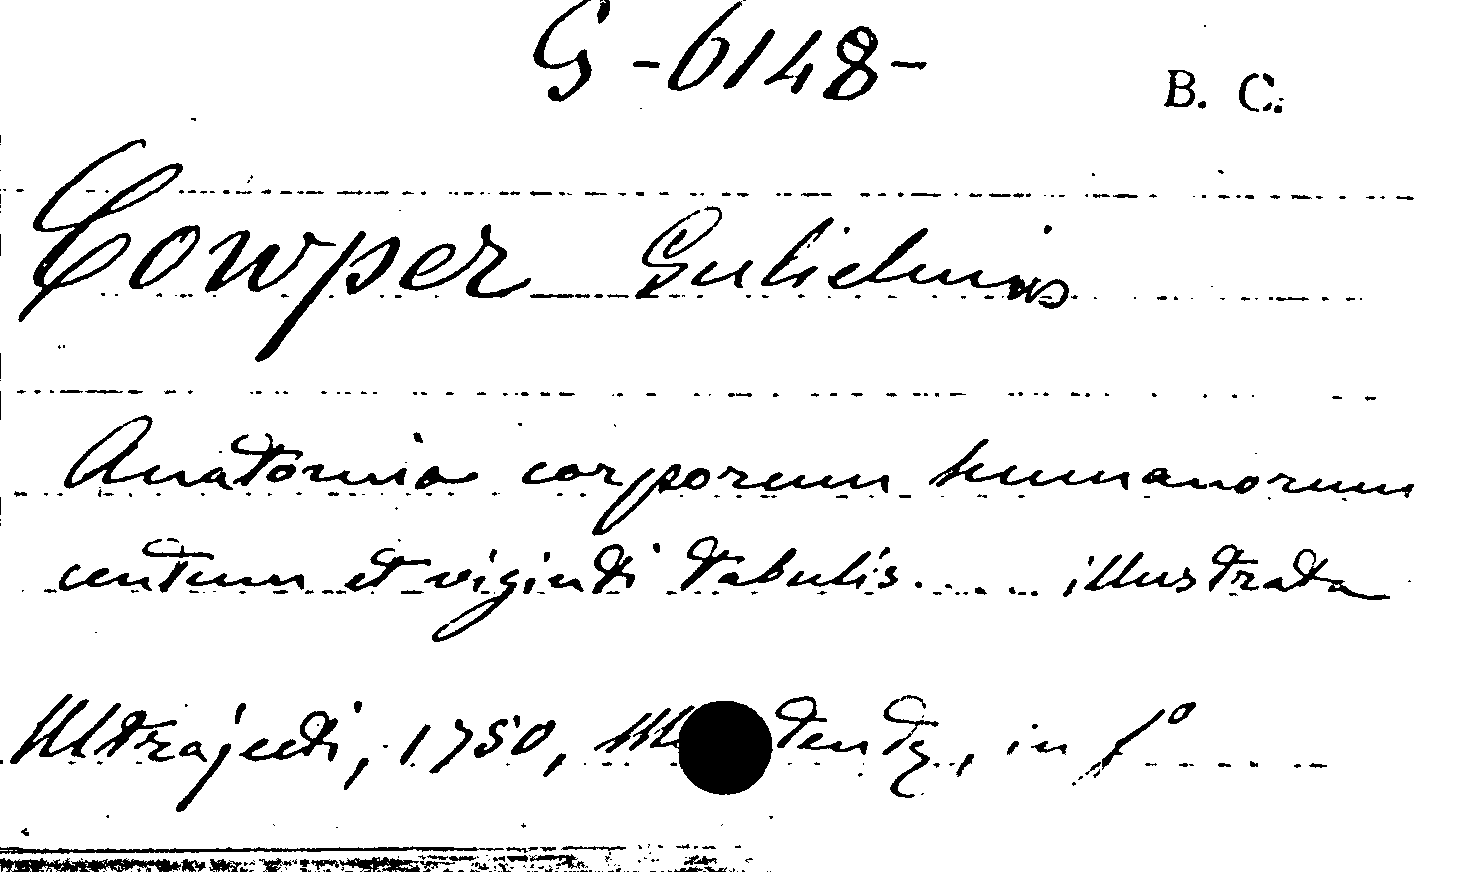 G-6148-
B. C.
Cowper Gulielmus
Anatomia corporum humanorum
centum et viginti tabulis..... illustrata
Ultrajecti, 1750, in f°